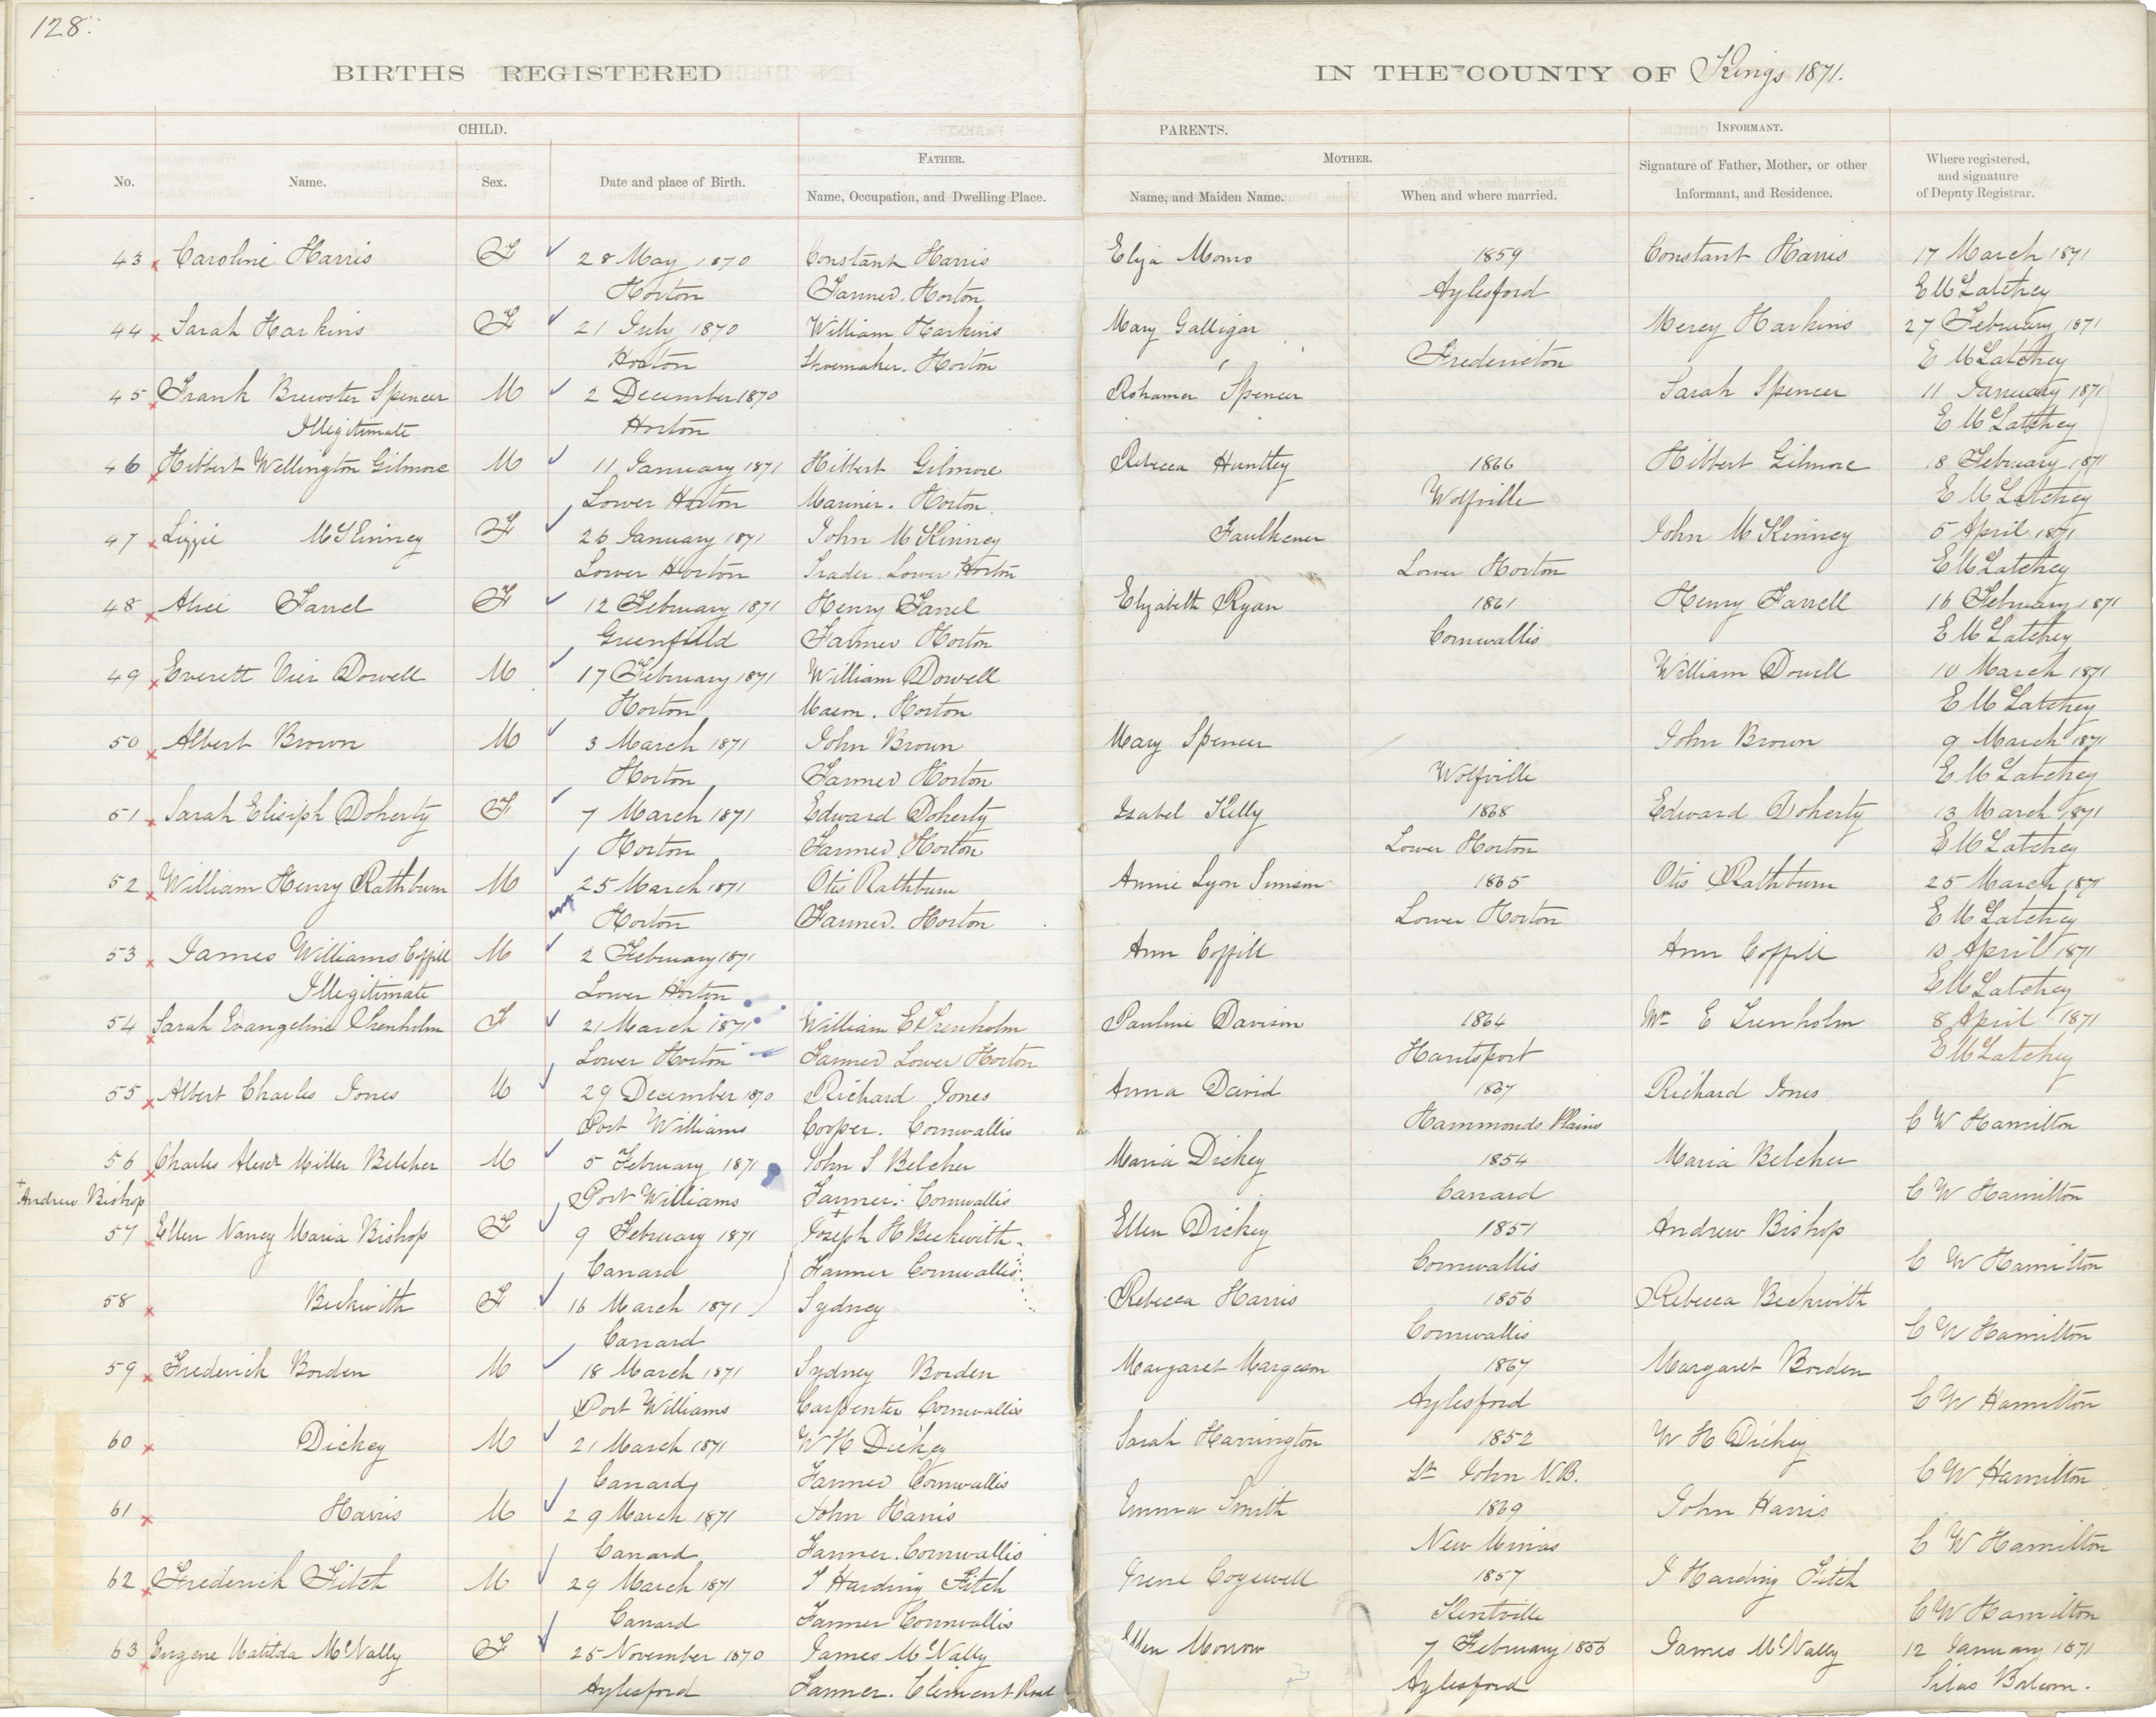 128.
BIRTHS REGISTERED IN THE COUNTY OF Kings 1871.
CHILD. PARENTS. INFORMANT.
FATHER. MOTHER.
No. Name. Sex. Date and place of Birth. Name, Occupation, and Dwelling Place. Name, and Maiden Name. When and where married. Signature of Father, Mother, or other Informant, and Residence. Where registered, and signature of Deputy Registrar.
43 Caroline Harris F 28 May 1870 Constant Harris Eliza 1859 Constant Harris 17 March 1871
Horton Farmer. Horton Aylesford E McLatchey
44 Sarah Harkins F 21 July 1870 William Harkins Mary Galligar Mercy Harkins 27 February 1871
Horton Shoemaker. Horton Fredericton E McLatchey
45 Frank Brewster Spencer M 2 December 1870 Spencer Sarah Spencer 11 January 1871
Illegitimate Horton E McLatchey
46 Hibbert Wellington Gilmore M 11 January 1871 Hibbert Gilmore Rebecca Huntley 1866 Hibbert Gilmore 18 February 1871
Lower Horton Mariner. Horton Wolfville E McLatchey
47 Lizzie McKinney F 26 January 1871 John McKinney Faulkener John McKinney 5 April 1871
Lower Horton Trader. Lower Horton Lower Horton E McLatchey
48 Alice Farrel F 12 February 1871 Henry Farrel Elizabeth Ryan 1861 Henry Farrell 16 February 1871
Greenfield Farmer Horton Cornwallis E McLatchey
49 Everett Vier Dowell M 17 February 1871 William Dowell William Dowell 10 March 1871
Horton Mason. Horton E McLatchey
50 Albert Brown M 3 March 1871 John Brown Mary Spencer John Brown 9 March 1871
Horton Farmer Horton Wolfville E McLatchey
51 Sarah Doherty F 7 March 1871 Edward Doherty Isabel Kelly 1868 Edward Doherty 13 March 1871
Horton Farmer. Horton Lower Horton E McLatchey
52 William Henry Rathburn M 25 March 1871 Otis Rathburn Annie Lyon 1865 Otis Rathburn 25 March 1871
Horton Farmer. Horton Lower Horton E McLatchey
53 James Williams Coffill M 2 February 1871 Ann Coffill Ann Coffill 10 April 1871
Illegitimate Lower Horton E McLatchey
54 Sarah Evangeline Trenholm F 21 March 1871 William E Trenholm Pauline Davison 1864 Wm E Trenholm 8 April 1871
Lower Horton Farmer Lower Horton Hantsport E McLatchey
55 Albert Charles Jones M 29 December 1870 Richard Jones Anna David 1867 Richard Jones
Port Williams Cooper. Cornwallis Hammonds Plains C W Hamilton
56 Charles Alexr Miller Belcher M 5 February 1871 John S Belcher Maria Dickey 1854 Maria Belcher
+Andrew Bishop Port Williams Farmer. Cornwallis Canard C W Hamilton
57 Ellen Nancy Maria Bishop F 9 February 1871 +Joseph H Beckwith Ellen Dickey 1851 Andrew Bishop
Canard Farmer Cornwallis Cornwallis C W Hamilton
58 Beckwith F 16 March 1871 Sydney Rebecca Harris 1856 Rebecca Beckwith
Canard Cornwallis C W Hamilton
59 Frederick Borden M 18 March 1871 Sydney Borden Margaret Margeson 1867 Margaret Borden
Port Williams Carpenter Cornwallis Aylesford C W Hamilton
60 Dickey M 21 March 1871 W H Dickey Sarah Harrington 1852 W H Dickey
Canard Farmer Cornwallis St John N.B. C W Hamilton
61 Harris M 29 March 1871 John Harris Emma Smith 1869 John Harris
Canard Farmer. Cornwallis New Minas C W Hamilton
62 Frederick Fitch M 29 March 1871 J Harding Fitch Irene Cogswell 1857 J Harding Fitch
Canard Farmer Cornwallis Kentville C W Hamilton
63 Eugene Matilda McNally F 25 November 1870 James McNally Ellen Morrow 7 February 1856 James McNally 12 January 1871
Aylesford Farmer. Clement Road Aylesford Silas